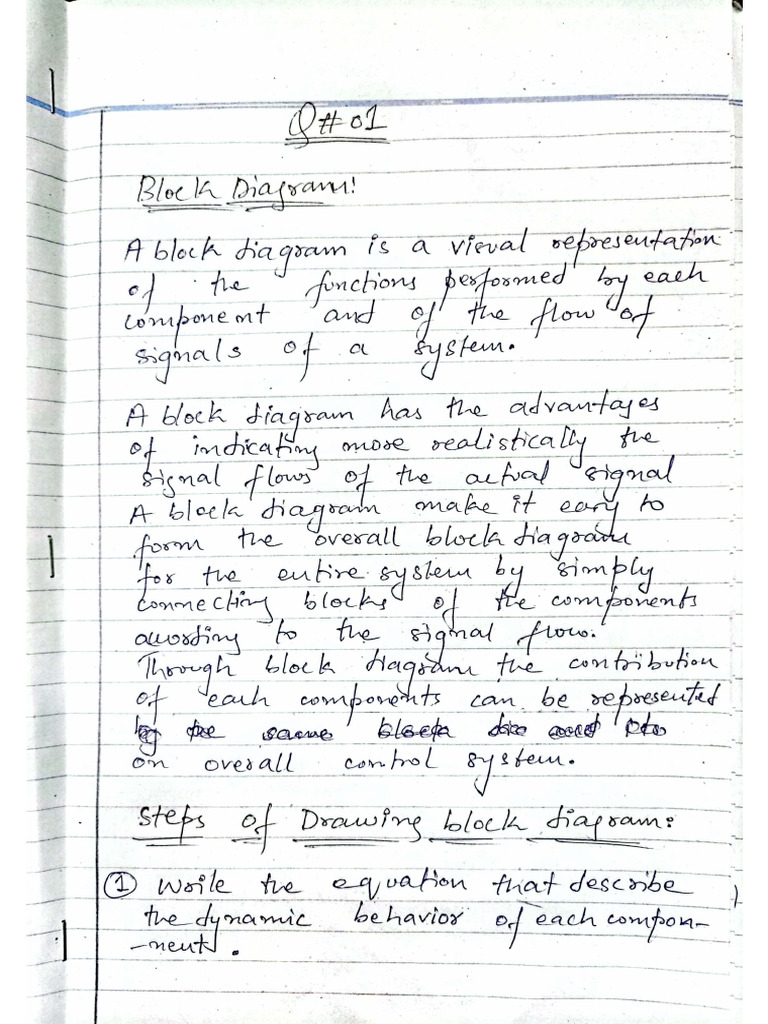 Q# 01
Block Diagram:
A block diagram is a visual representation
of the functions performed by each
component and of the flow of
signals of a system.
A block diagram has the advantages
of indicating more realistically the
signal flows of the actual signal
A block diagram make it easy to
form the overall block diagram
for the entire system by simply
connecting blocks of the components
acording to the signal flow.
Through block diagram the contribution
of each components can be represented
by the same block
on overall control system.
Steps of Drawing block diagram:
① Write the equation that describe
the dynamic behavior of each compon-
-nent.